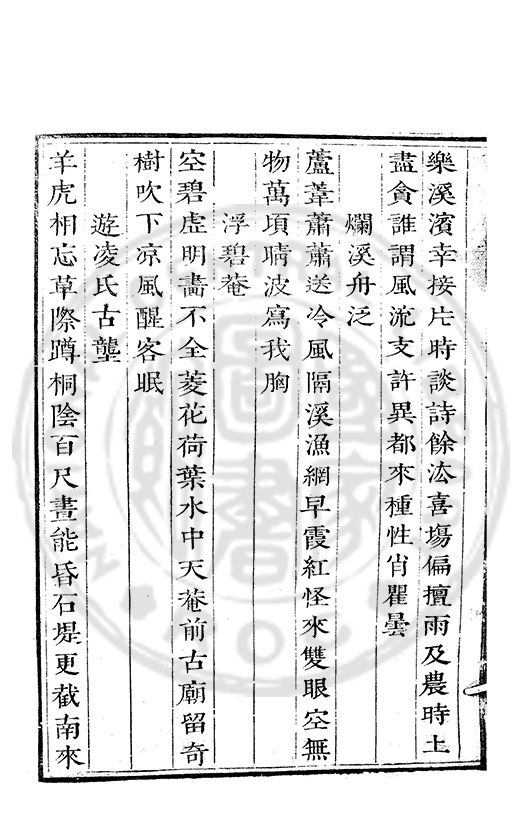 樂溪濱幸接片時談詩餘法喜塲偏擅雨及農時土
盡貪誰謂風流支許異都來種性肖瞿曇
爛溪舟泛
蘆葦蕭蕭送冷風隔溪漁網早霞紅怪來雙眼空無
物萬頃晴波寫我胸
浮碧菴
空碧虛明畵不全菱花荷葉水中天菴前古廟留奇
樹吹下凉風醒客眠
遊凌氏古壟
羊虎相忘草際蹲桐陰百尺晝能昏石堤更截南來